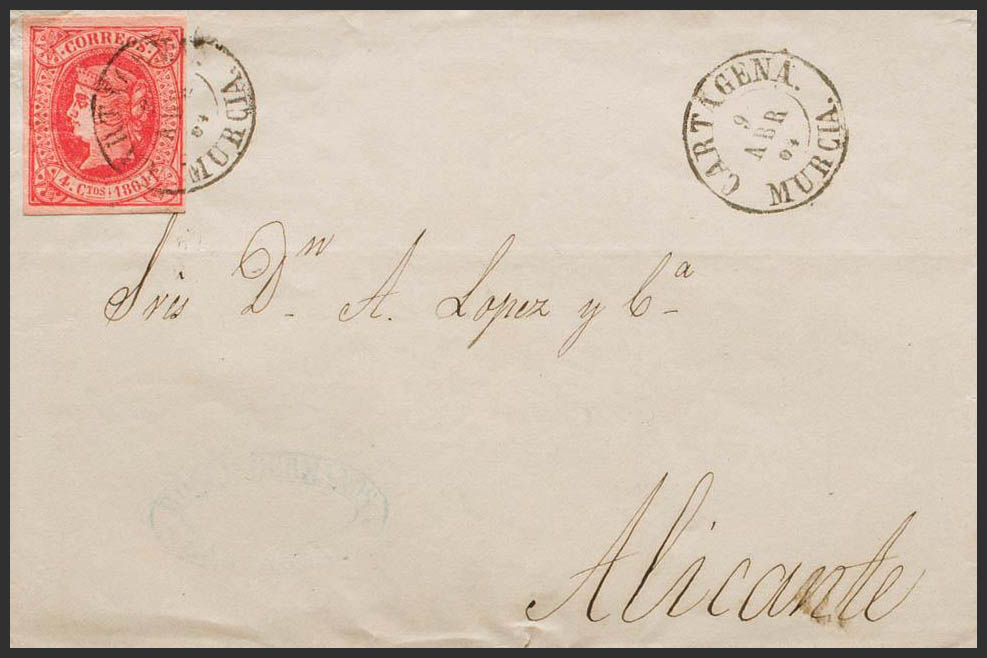 CORREOS
4 CTOS 1864
MURCIA.
CARTAGENA.
9
ABR
64
MURCIA.
Sres Dn A. Lopez y Ca
Alicante